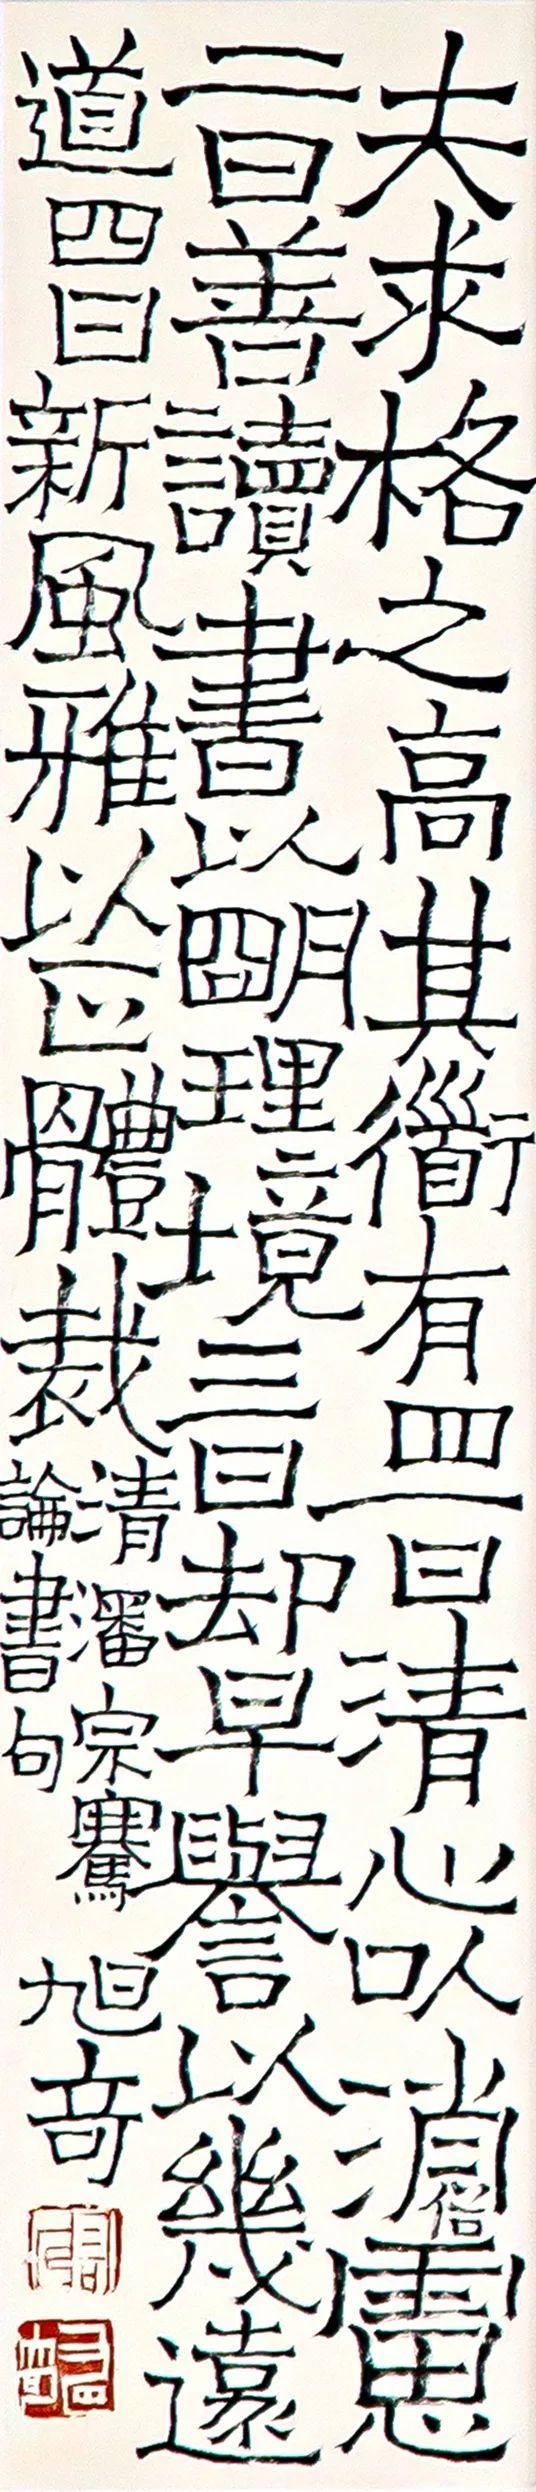 夫求格之高其衜有四一曰清心以消俗慮
二曰善讀書以朙理境三曰却早譽以幾遠
道四曰新風雅以正體裁
清潘宗騫
論書句
旭竒